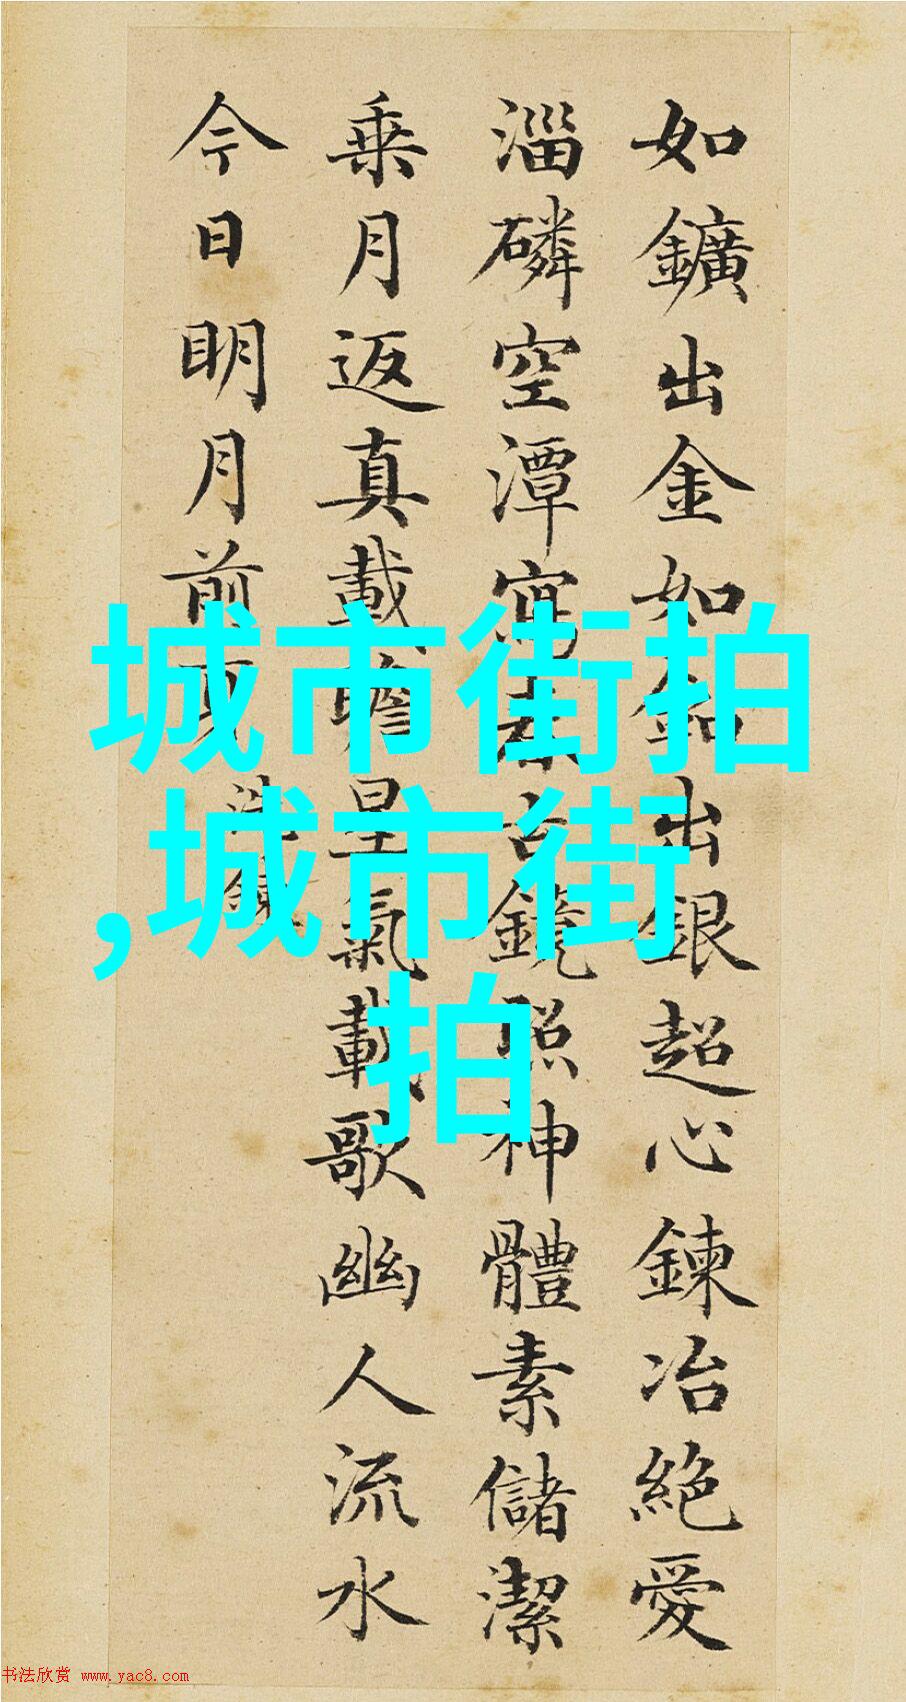 如鑛出金如鉛出銀超心鍊冶絶愛
淄磷空潭寫春古鏡照神體素儲潔
乗月返真載瞻星氣載歌幽人流水
今日明月前身
洗鍊
城市街拍
,城市街
拍
书法欣赏 www.yac8.com